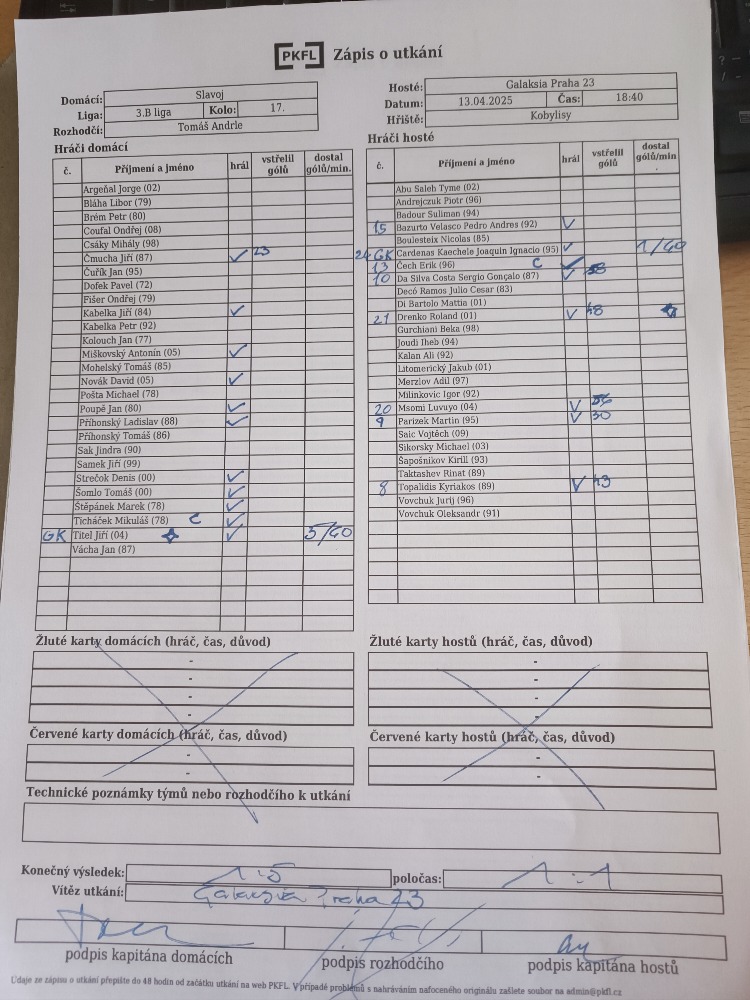 PKFL Zápis o utkání
Domácí: Slavoj
Liga: 3.B liga Kolo: 17.
Rozhodčí: Tomáš Andrle
Hosté: Galaksia Praha 23
Datum: 13.04.2025 Čas: 18:40
Hřiště: Kobylisy
Hráči domácí
č. Příjmení a jméno hrál vstřelil gólů dostal gólů/min.
Argeñal Jorge (02)
Bláha Libor (79)
Brém Petr (80)
Coufal Ondřej (08)
Csáky Mihály (98)
Čmucha Jiří (87) ✓ 23
Čuřík Jan (95)
Dofek Pavel (72)
Fišer Ondřej (79)
Kabelka Jiří (84) ✓
Kabelka Petr (92)
Kolouch Jan (77)
Miškovský Antonín (05) ✓
Mohelský Tomáš (85)
Novák David (05) ✓
Pošta Michael (78)
Poupě Jan (80) ✓
Příhonský Ladislav (88) ✓
Příhonský Tomáš (86)
Sak Jindra (90)
Samek Jiří (99)
Strečok Denis (00) ✓
Šomlo Tomáš (00) ✓
Štěpánek Marek (78) ✓
Ticháček Mikuláš (78) C ✓
GK Titel Jiří (04) ✓ 5/60
Vácha Jan (87)
Hráči hosté
č. Příjmení a jméno hrál vstřelil gólů dostal gólů/min.
Abu Saleh Tyme (02)
Andrejczuk Piotr (96)
Badour Suliman (94)
15 Bazurto Velasco Pedro Andres (92) ✓
Boulesteix Nicolas (85)
24 GK Cardenas Kaechele Joaquin Ignacio (95) ✓ 1/60
13 Čech Erik (96) C ✓
10 Da Silva Costa Sergio Gonçalo (87) ✓
Decó Ramos Julio Cesar (83)
Di Bartolo Mattia (01)
21 Drenko Roland (01) ✓ 48
Gurchiani Beka (98)
Joudi Iheb (94)
Kalan Ali (92)
Litomerický Jakub (01)
Merzlov Adil (97)
Milinkovic Igor (92)
20 Msomi Luvuyo (04) ✓
9 Parizek Martin (95) ✓ 30
Saic Vojtěch (09)
Sikorsky Michael (03)
Šapošnikov Kirill (93)
Taktashev Rinat (89)
8 Topalidis Kyriakos (89) ✓ 43
Vovchuk Jurij (96)
Vovchuk Oleksandr (91)
Žluté karty domácích (hráč, čas, důvod)
-
-
-
-
Žluté karty hostů (hráč, čas, důvod)
-
-
-
-
Červené karty domácích (hráč, čas, důvod)
-
-
Červené karty hostů (hráč, čas, důvod)
-
-
Technické poznámky týmů nebo rozhodčího k utkání
Konečný výsledek: 1:5 poločas: 1:1
Vítěz utkání: Galaksia Praha 23
podpis kapitána domácích podpis rozhodčího podpis kapitána hostů
Údaje ze zápisu o utkání přepište do 48 hodin od začátku utkání na web PKFL. V případě problémů s nahráváním nafoceného originálu zašlete soubor na admin@pkfl.cz